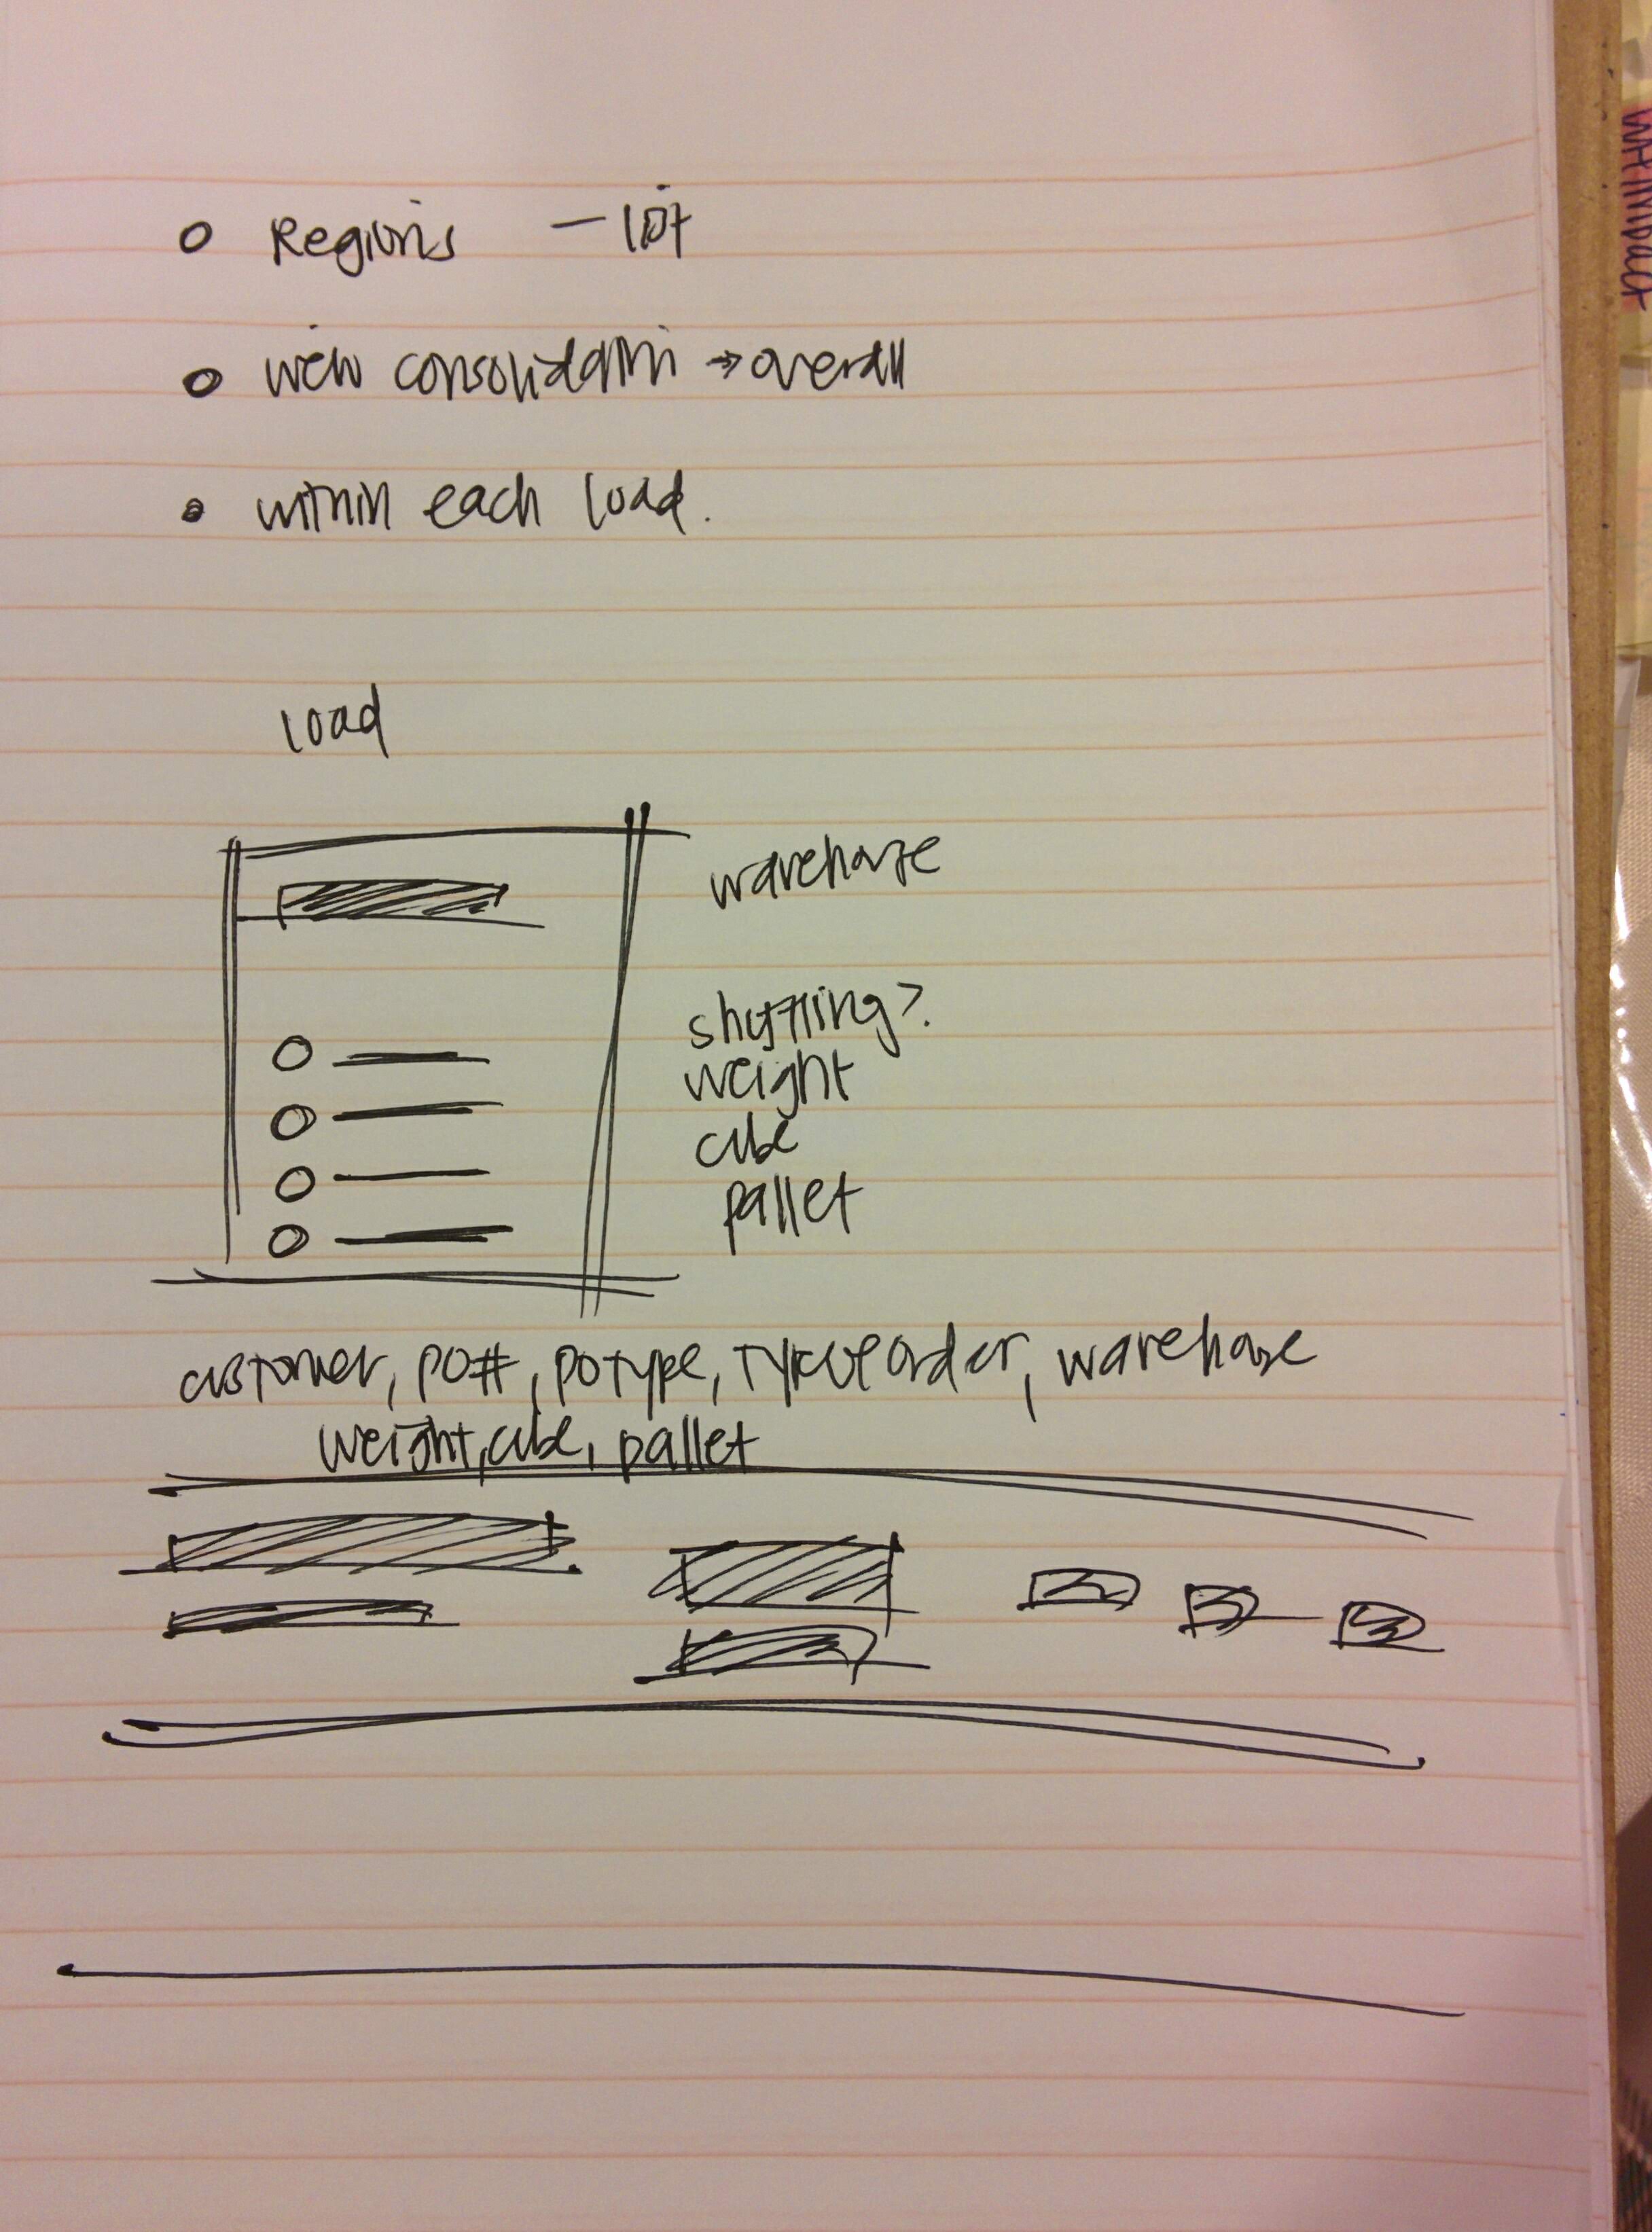 Regions - list
view consolidation → overall
within each load.
load
warehouse
shuttling?
weight
cube
pallet
customer, PO#, PO type, type of order, warehouse
weight, cube, pallet